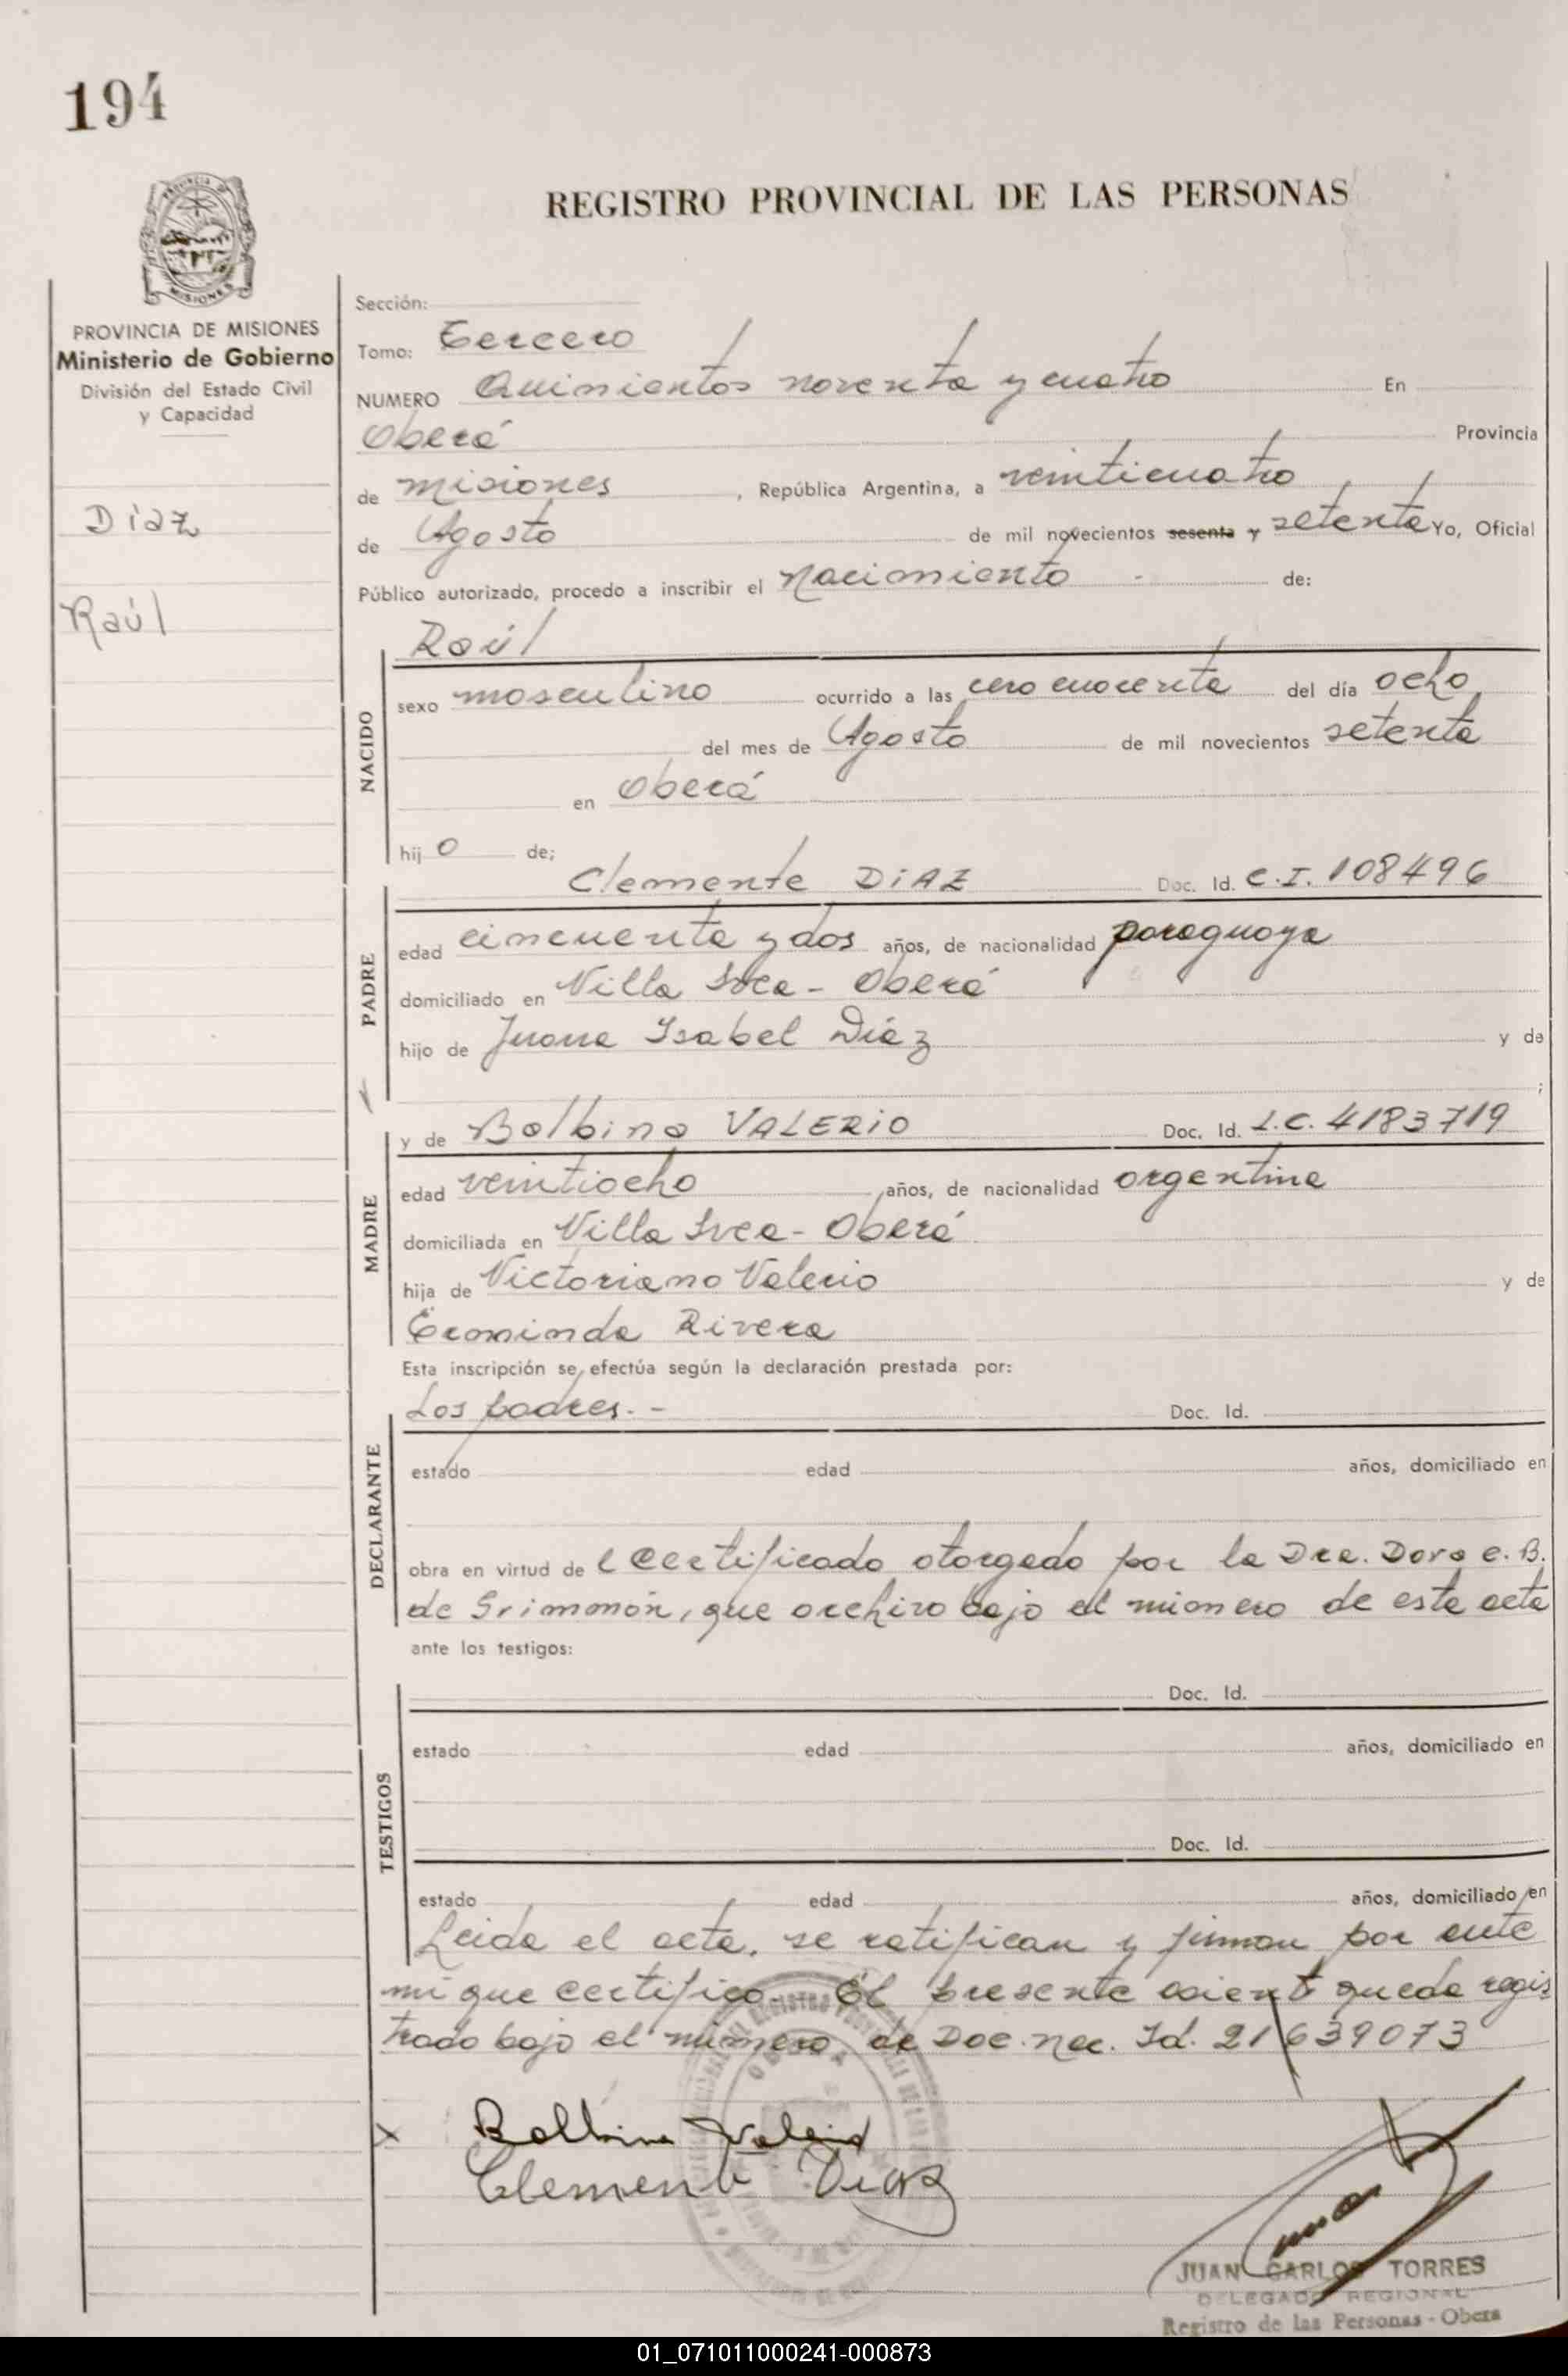 194
REGISTRO PROVINCIAL DE LAS PERSONAS
PROVINCIA DE MISIONES
Ministerio de Gobierno
División del Estado Civil
y Capacidad
Diaz
Raúl
Sección:
Tomo: Tercero
NUMERO Quinientos noventa y cuatro En
Oberá Provincia
de misiones, República Argentina, a veinticuatro
de Agosto de mil novecientos sesenta y setenta Yo, Oficial
Público autorizado, procedo a inscribir el nacimiento - de:
Raúl
NACIDO
sexo masculino ocurrido a las cero cuarenta del día ocho
del mes de Agosto de mil novecientos setenta
en Oberá
hijo de;
Clemente DiAZ Doc. Id. C.I. 108496
PADRE
edad cincuenta y dos años, de nacionalidad paraguaya
domiciliado en Villa - Oberá
hijo de Juana Isabel Díaz y de
;
y de Balbina VALERiO Doc. Id. L.C. 4183719
MADRE
edad veintiocho años, de nacionalidad argentina
domiciliada en Villa - Oberá
hija de Victoriano Valerio y de
Erminda Rivera
Esta inscripción se efectúa según la declaración prestada por:
Los padres. - Doc. Id.
DECLARANTE
estado edad años, domiciliado en
obra en virtud de certificado otorgado por la Dra. Dora e. B.
de que archivo bajo el número de este acta
ante los testigos:
Doc. Id.
TESTIGOS
estado edad años, domiciliado en
Doc. Id.
estado edad años, domiciliado en
Leida el acta, se ratifican y firman por ante
mi que certifico. El presente asiento queda regis
trado bajo el número de Doc. nac. Id. 21/639073
X Balbina Valerio
Clemente Diaz
JUAN CARLOS TORRES
DELEGADO REGIONAL
Registro de las Personas - Obera
01_071011000241-000873